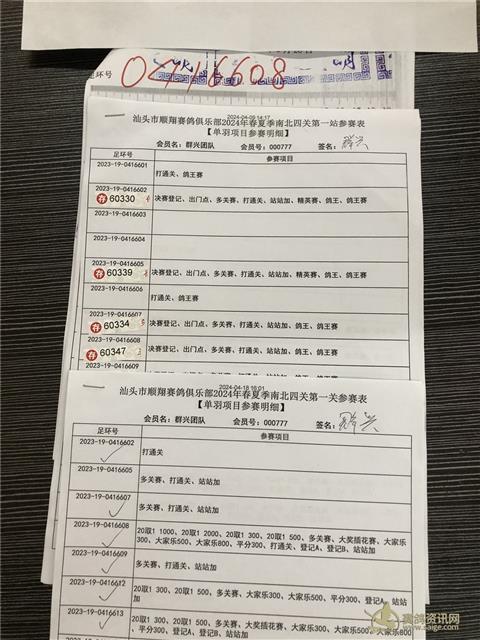 足环号
0416608
2024-04-09 14:17
汕头市顺翔赛鸽俱乐部2024年春夏季南北四关第一站参赛表
【单羽项目参赛明细】
会员名：群兴团队 会员号：000777 签名：
足环号 参赛项目
2023-19-0416601
打通关、鸽王赛
2023-19-0416602
60330 决赛登记、出门点、多关赛、打通关、站站加、精英赛、鸽王、鸽王赛
2023-19-0416603
2023-19-0416604
2023-19-0416605
60339 决赛登记、出门点、多关赛、打通关、站站加、精英赛、鸽王、鸽王赛
2023-19-0416606
打通关、鸽王赛
2023-19-0416607
60334 决赛登记、出门点、多关赛、打通关、站站加、鸽王、鸽王赛
2023-19-0416608
60347 决赛登记、出门点、多关赛、打通关、站站加、鸽王、鸽王赛
2023-19-0416609
2024-04-18 16:01
汕头市顺翔赛鸽俱乐部2024年春夏季南北四关第一关参赛表
【单羽项目参赛明细】
会员名：群兴团队 会员号：000777 签名：群兴
足环号 参赛项目
2023-19-0416602
打通关
2023-19-0416605
多关赛、打通关、站站加
2023-19-0416607
多关赛、打通关、站站加
2023-19-0416608
20取1 1000、20取1 2000、20取1 300、20取1 500、多关赛、大奖插花赛、大家乐
300、大家乐500、大家乐800、平分300、打通关、登记A、登记B、站站加
2023-19-0416609
多关赛、打通关、站站加
2023-19-0416612
20取1 300、20取1 500、多关赛、大家乐300、大家乐500、平分300、登记A、站站
加
2023-19-0416613
赛鸽资讯网
www.saige.com